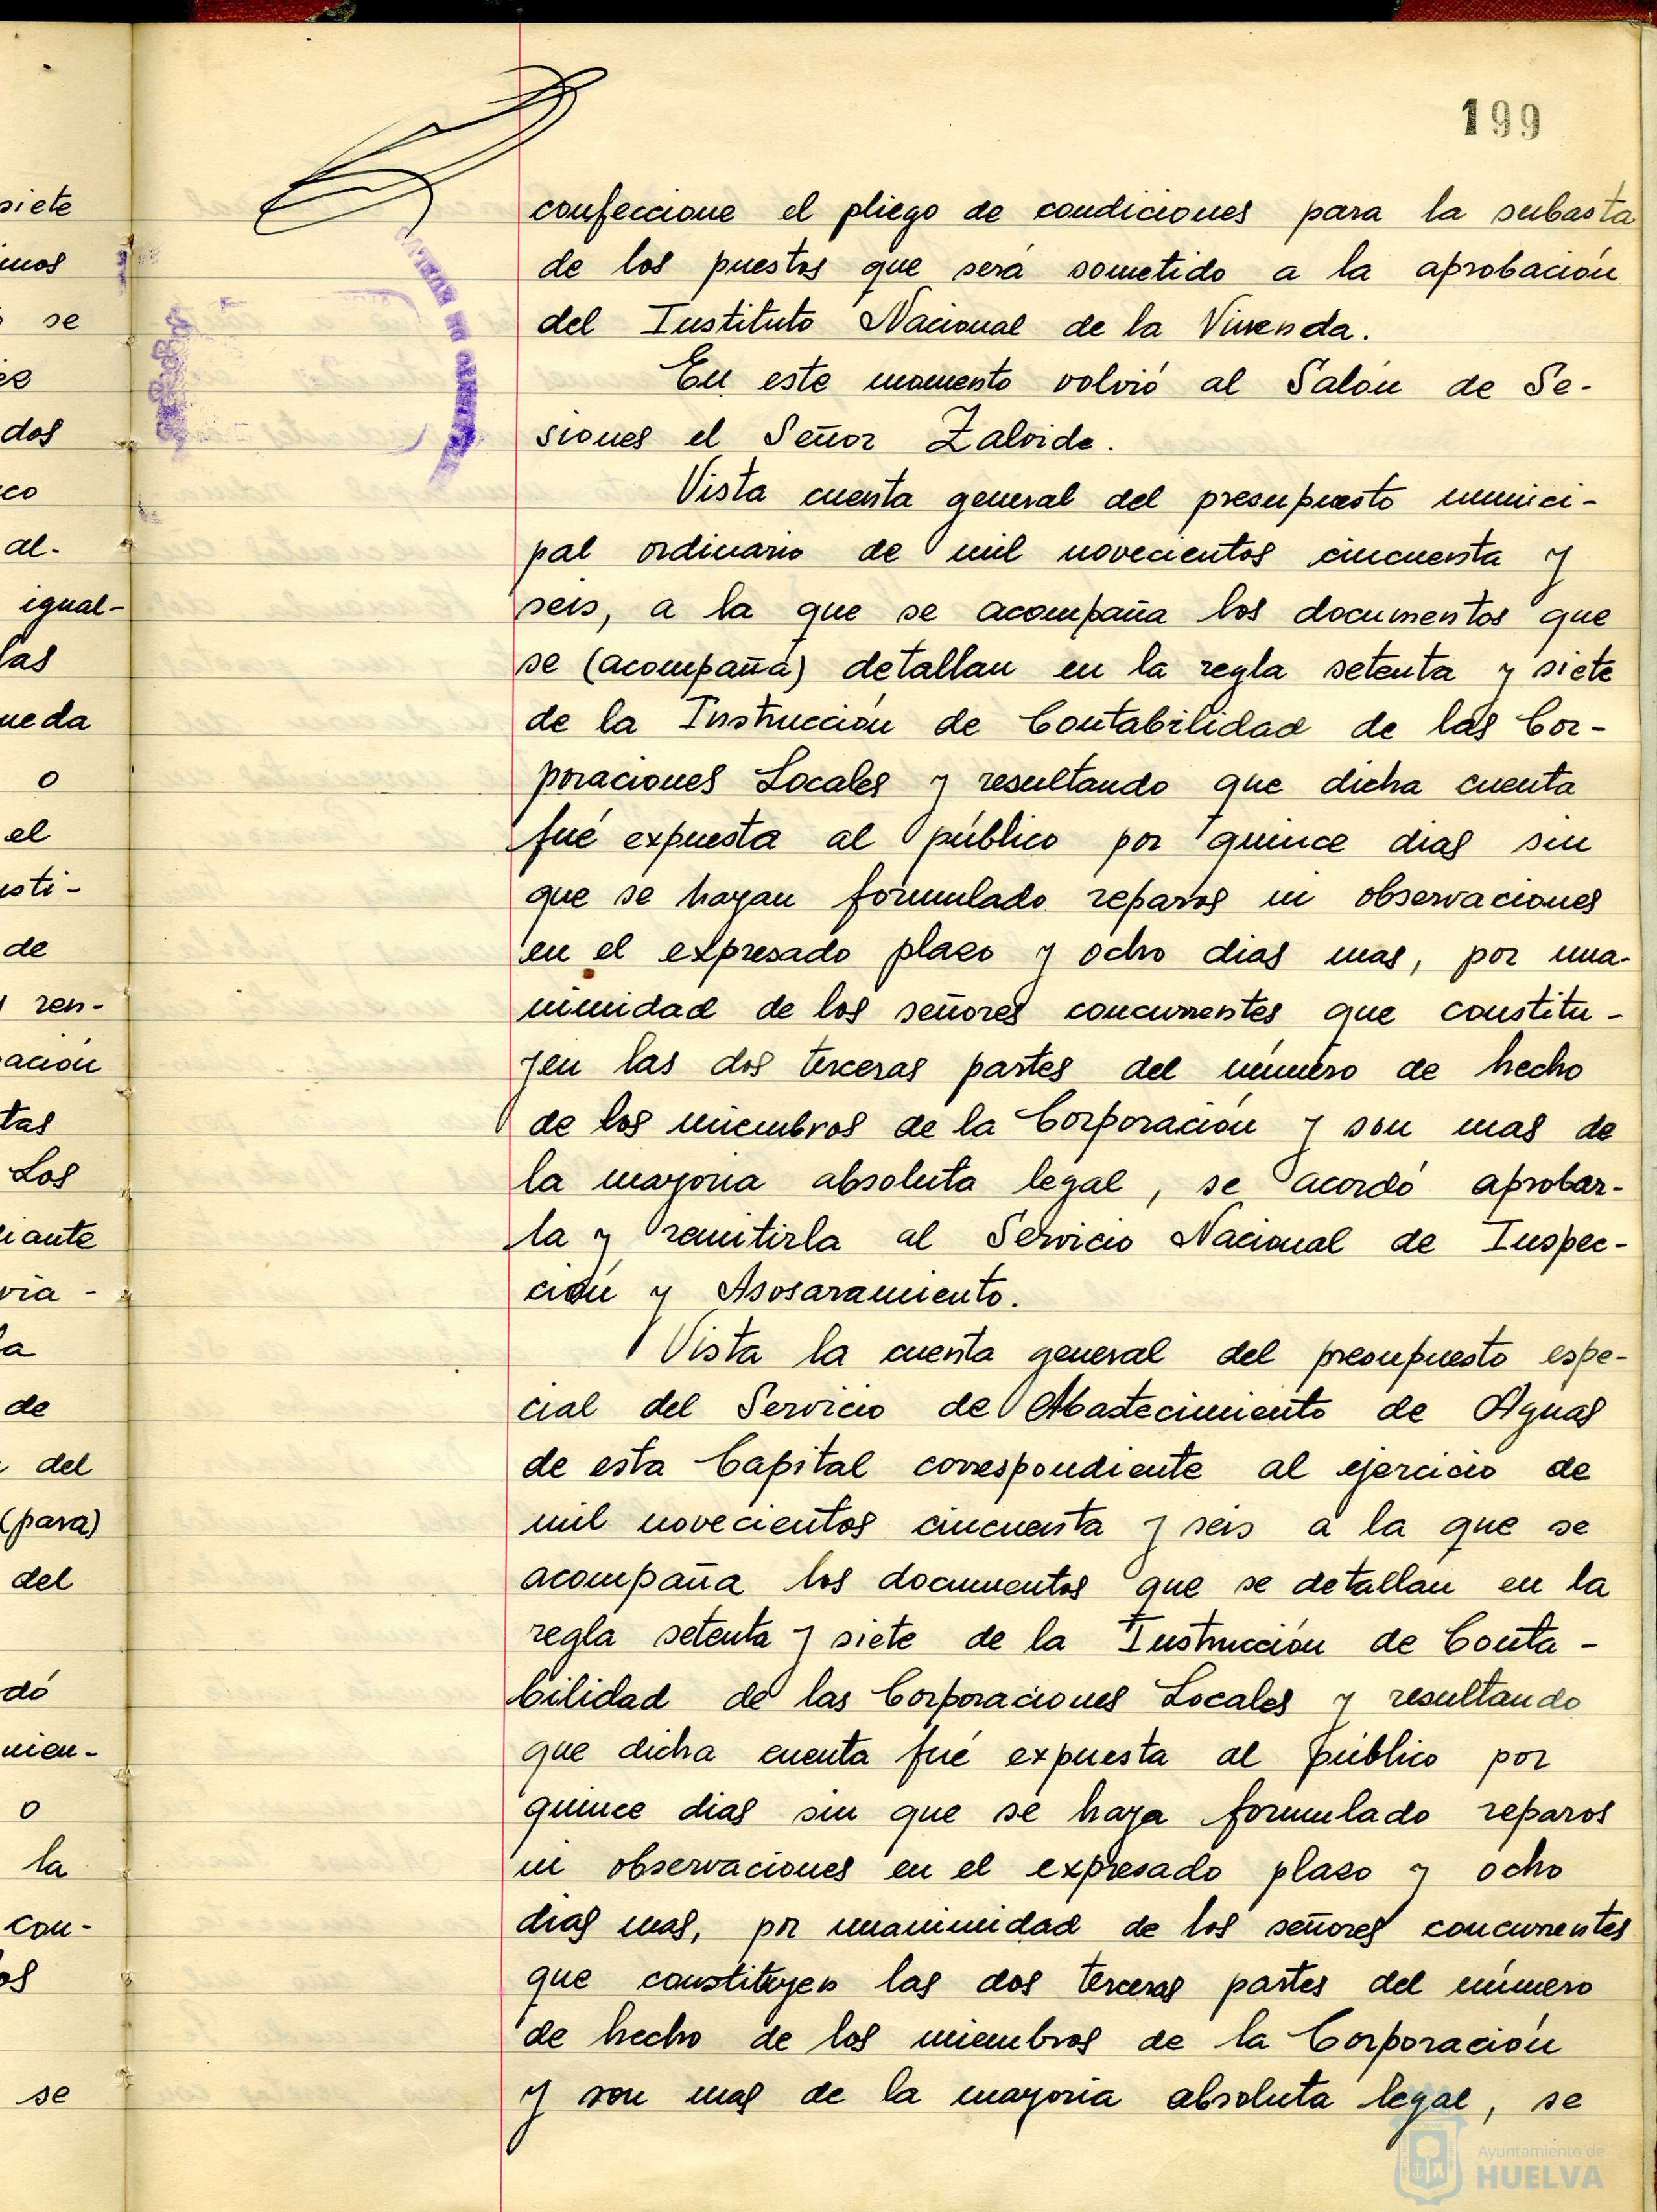 199
confeccione el pliego de condiciones para la subasta
de los puestos que será sometido a la aprobación
del Instituto Nacional de la Vivienda.
En este momento volvió al Salón de Se-
siones el Señor Zalvide.
Vista cuenta general del presupuesto munici-
pal ordinario de mil novecientos cincuenta y
seis, a la que se acompaña los documentos que
se (acompaña) detallan en la regla setenta y siete
de la Instrucción de Contabilidad de las Cor-
poraciones Locales y resultando que dicha cuenta
fué expuesta al público por quince dias sin
que se hayan formulado reparos ni observaciones
en el expresado plazo y ocho dias mas, por una-
nimidad de los señores concurrentes que constitu-
yen las dos terceras partes del número de hecho
de los miembros de la Corporación y son mas de
la mayoria absoluta legal, se acordó aprobar-
la y remitirla al Servicio Nacional de Inspec-
ción y Asosaramiento.
Vista la cuenta general del presupuesto espe-
cial del Servicio de Abastecimiento de Aguas
de esta Capital correspondiente al ejercicio de
mil novecientos cincuenta y seis a la que se
acompaña los documentos que se detallan en la
regla setenta y siete de la Instrucción de Conta-
bilidad de las Corporaciones Locales y resultando
que dicha cuenta fué expuesta al público por
quince dias sin que se haya formulado reparos
ni observaciones en el expresado plazo y ocho
dias mas, por unanimidad de los señores concurrentes
que constituyen las dos terceras partes del número
de hecho de los miembros de la Corporación
y son mas de la mayoria absoluta legal, se
siete
se
dos
al-
igual-
las
o
el
de
ren-
Los
de
del
(para)
del
o
la
con-
se
Ayuntamiento de
HUELVA